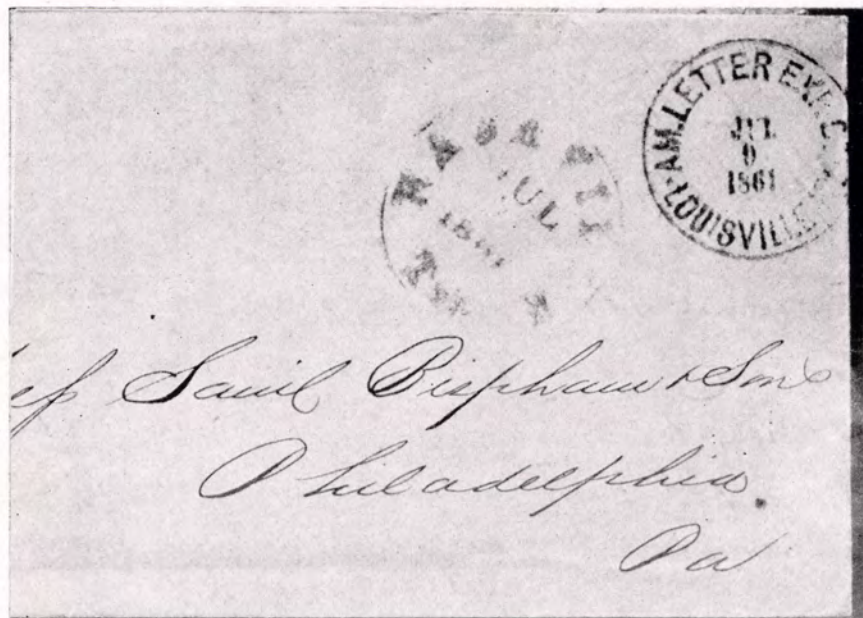 AM. LETTER EXP. C
JUL
9
1861
LOUISVILLE
NASHVIL
JUL
1861
Saml Bispham & Sons
Philadelphia
Pa